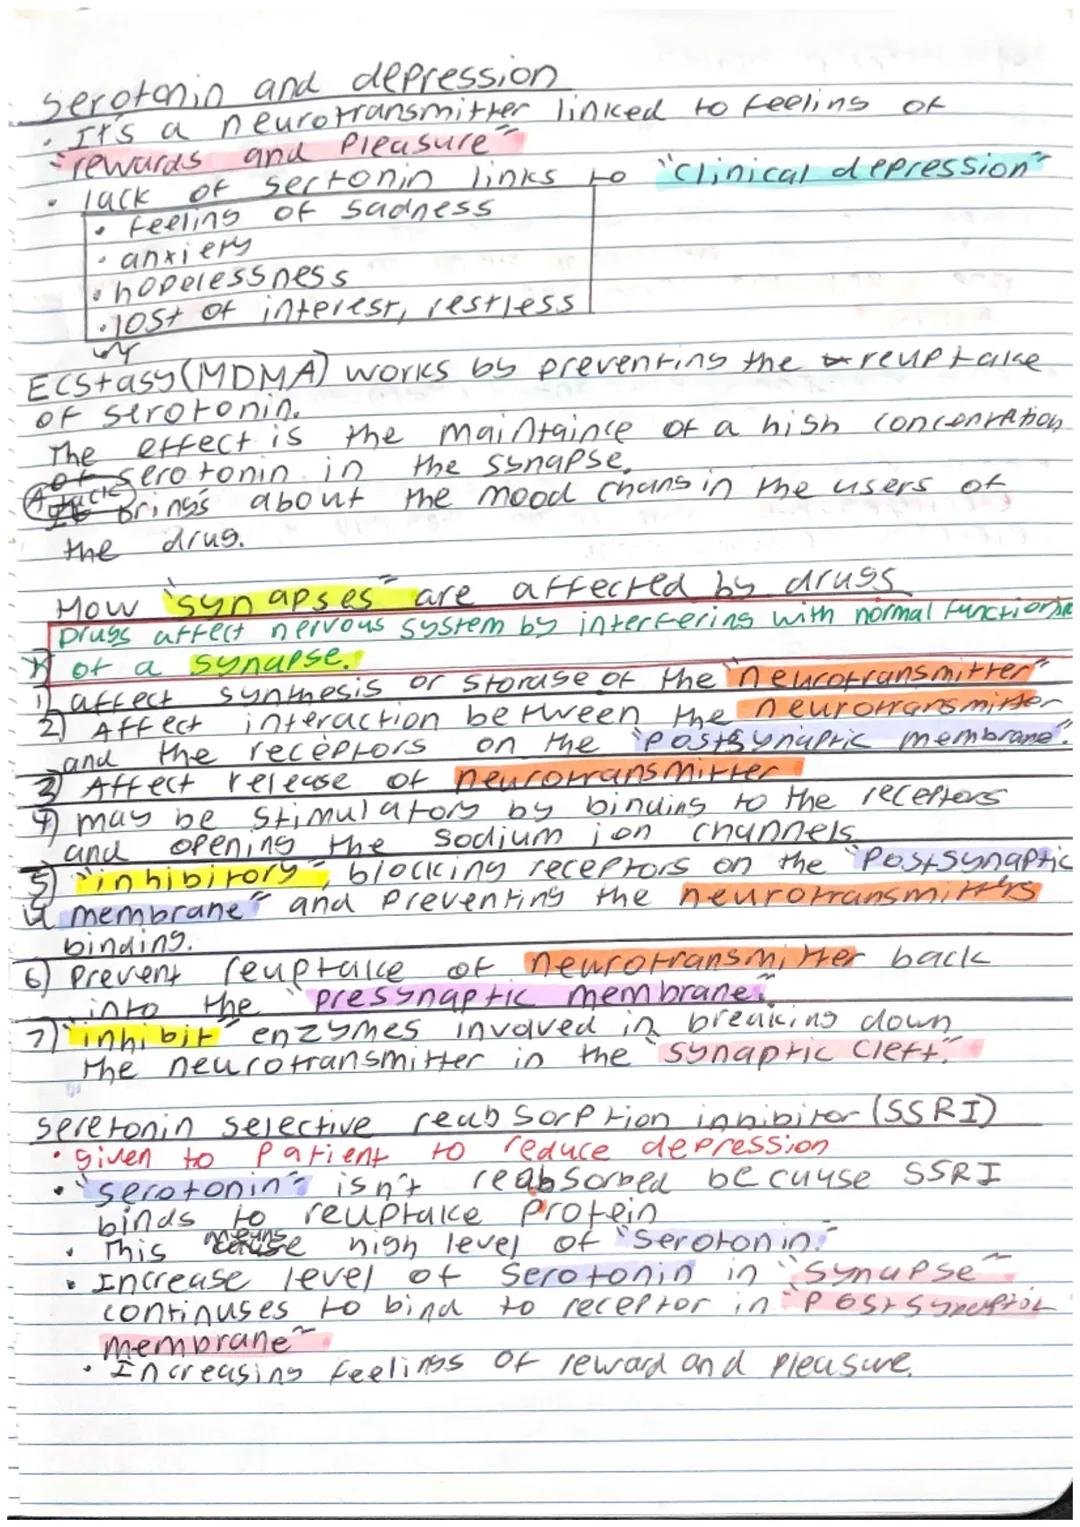 Serotonin and depression
· It's a neurotransmitter linked to feeling of
"rewards and Pleasure"
· lack of sertonin links to "clinical depression"
· feeling of sadness
· anxiety
· hopelessness
· lost of interest, restless
Ecstasy (MDMA) works by preventing the reuptake
of serotonin.
The effect is the maintaince of a high concentration
of serotonin in the synapse.
brings about the mood chang in the users of
the drug.
How "synapses" are affected by drugs
Drugs affect nervous system by interfering with normal function
of a synapse.
1) affect synthesis or storage of the "neurotransmitter"
2) Affect interaction between the neurotransmitter
and the receptors on the "postsynaptic membrane".
3) Affect release of neurotransmitter
4) may be stimulatory by binding to the receptors
and opening the sodium ion channels
5) "inhibitory", blocking receptors on the "Postsynaptic
membrane" and Preventing the neurotransmitters
binding.
6) Prevent reuptake of neurotransmitter back
into the "presynaptic membrane".
7) "inhibit" enzymes involved in breaking down
the neurotransmitter in the "synaptic cleft".
Seretonin selective reabsorption inhibitor (SSRI)
· given to Patient to reduce depression
· "serotonin" isn't reabsorbed because SSRI
binds to reuptake Protein
· This means high level of "Serotonin."
· Increase level of Serotonin in "Synapse"
continuses to bind to receptor in "Postsynaptic
membrane"
· Increasing feelings of reward and pleasure.